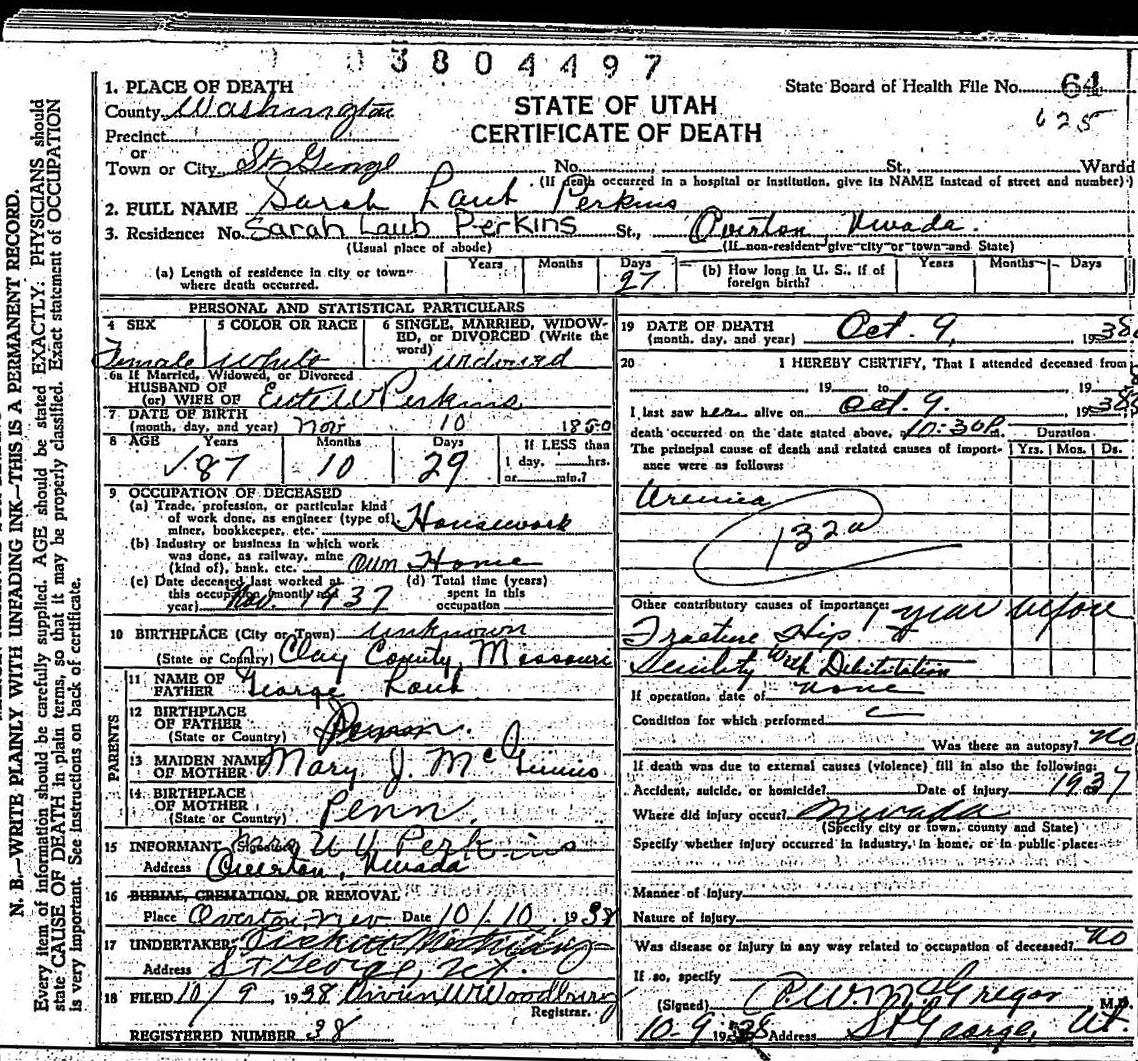 03804497
State Board of Health File No. 64
625
STATE OF UTAH
CERTIFICATE OF DEATH
1. PLACE OF DEATH
County Washington
Precinct
or
Town or City St George No. St., Wardd
(If death occurred in a hospital or institution, give its NAME instead of street and number)
2. FULL NAME Sarah Laub Perkins
3. Residence: No. Sarah Laub Perkins St., Overton, Nevada.
(Usual place of abode) (If non-resident give city or town and State)
(a) Length of residence in city or town where death occurred. Years Months Days 27
(b) How long in U. S., if of foreign birth? Years Months Days
PERSONAL AND STATISTICAL PARTICULARS
4 SEX Female
5 COLOR OR RACE White
6 SINGLE, MARRIED, WIDOWED, or DIVORCED (Write the word) Widowed
6a If Married, Widowed, or Divorced
HUSBAND OF
(or) WIFE OF Perkins
7 DATE OF BIRTH
(month, day, and year) Nov 10 1850
8 AGE Years 87 Months 10 Days 29 If LESS than 1 day, hrs. or min.?
9 OCCUPATION OF DECEASED
(a) Trade, profession, or particular kind
of work done, as engineer (type of)
miner, bookkeeper, etc. Housework
(b) Industry or business in which work
was done, as railway, mine
(kind of), bank, etc. Own Home
(c) Date deceased last worked at this occupation (month and year) Nov. 1937
(d) Total time (years) spent in this occupation
10 BIRTHPLACE (City or Town) unknown
(State or Country) Clay County, Missouri
PARENTS
11 NAME OF FATHER George Laub
12 BIRTHPLACE OF FATHER
(State or Country) Penn.
13 MAIDEN NAME OF MOTHER Mary J. McGinnis
14 BIRTHPLACE OF MOTHER
(State or Country) Penn.
15 INFORMANT (Signed) Mrs U V Perkins
Address Overton, Nevada
16 BURIAL, CREMATION, OR REMOVAL
Place Overton Nev Date 10/10 1938
17 UNDERTAKER
Address St George, Ut.
18 FILED 10/9, 1938 Owen W Woodbury
Registrar.
REGISTERED NUMBER 38
19 DATE OF DEATH
(month, day, and year) Oct. 9, 1938
20 I HEREBY CERTIFY, That I attended deceased from
19 to 19
I last saw her alive on Oct. 9. 1938
death occurred on the date stated above, 10:30 P.m.
Duration
Yrs. Mos. Ds.
The principal cause of death and related causes of importance were as follows:
Uremia
132a
Other contributory causes of importance: 1 year before
Fracture Hip
Senility With Debilitation
If operation, date of none
Condition for which performed
Was there an autopsy? No
If death was due to external causes (violence) fill in also the following:
Accident, suicide, or homicide? Date of injury 1937
Where did injury occur? Nevada
(Specify city or town, county and State)
Specify whether injury occurred in industry, in home, or in public place:
Manner of injury
Nature of injury
Was disease or injury in any way related to occupation of deceased? No
If so, specify
(Signed) McGregor M.D.
10-9 1938 Address St George, Ut.
N. B.—WRITE PLAINLY WITH UNFADING INK—THIS IS A PERMANENT RECORD.
Every item of information should be carefully supplied. AGE should be stated EXACTLY. PHYSICIANS should
state CAUSE OF DEATH in plain terms, so that it may be properly classified. Exact statement of OCCUPATION
is very important. See instructions on back of certificate.